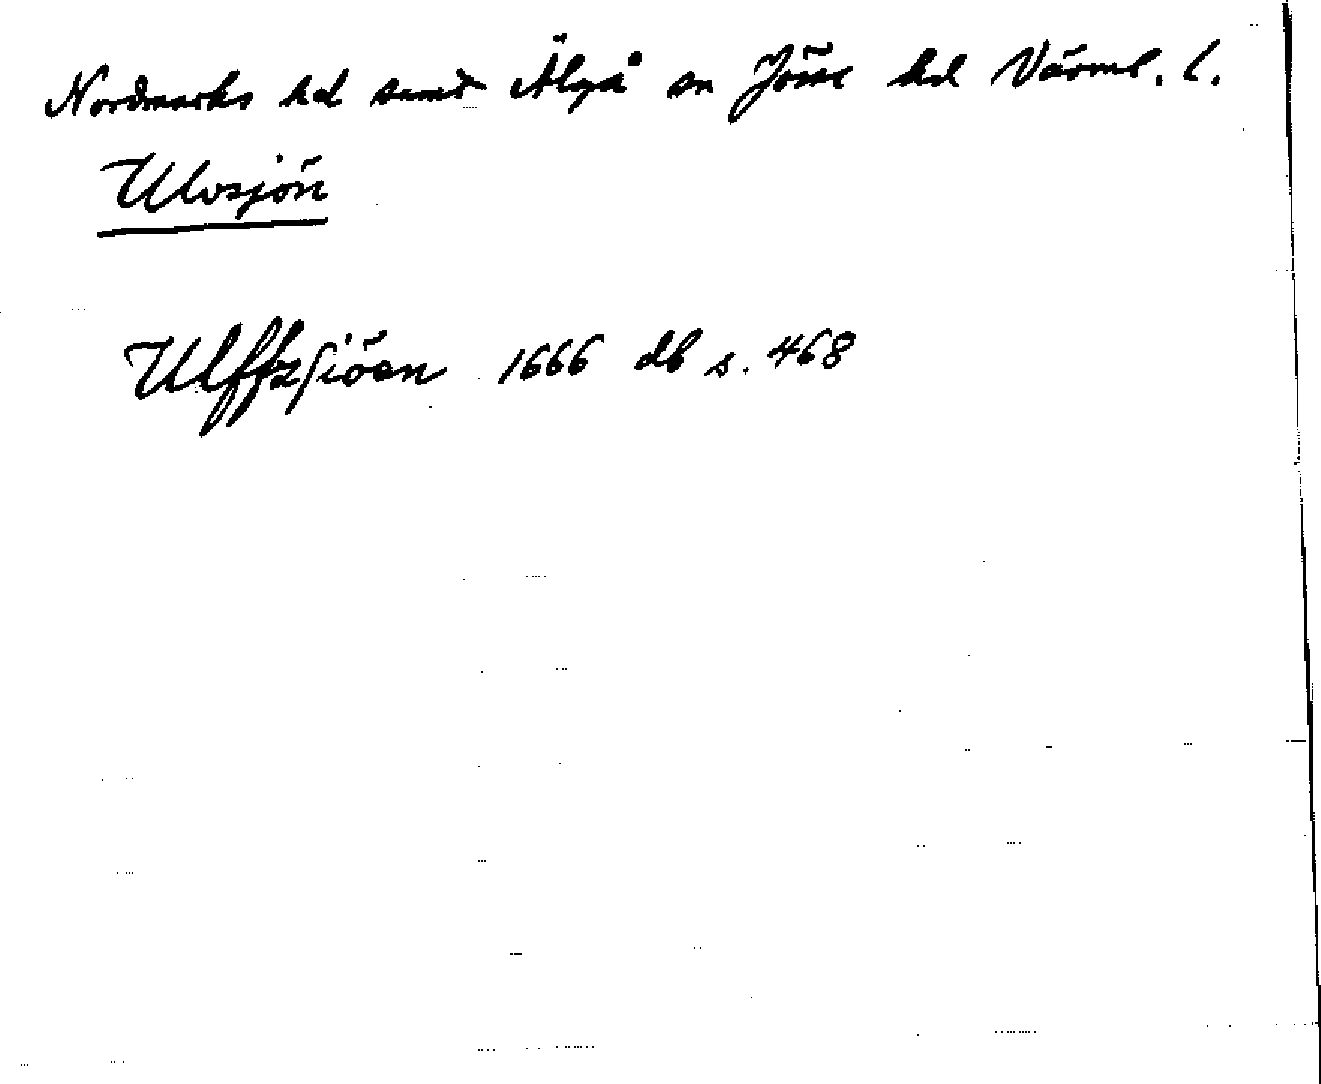 Nordmarks hd samt Älgå sn Jösse hd Värml. l.
Ulvsjön
Ulffzsjöen 1666 db s. 468